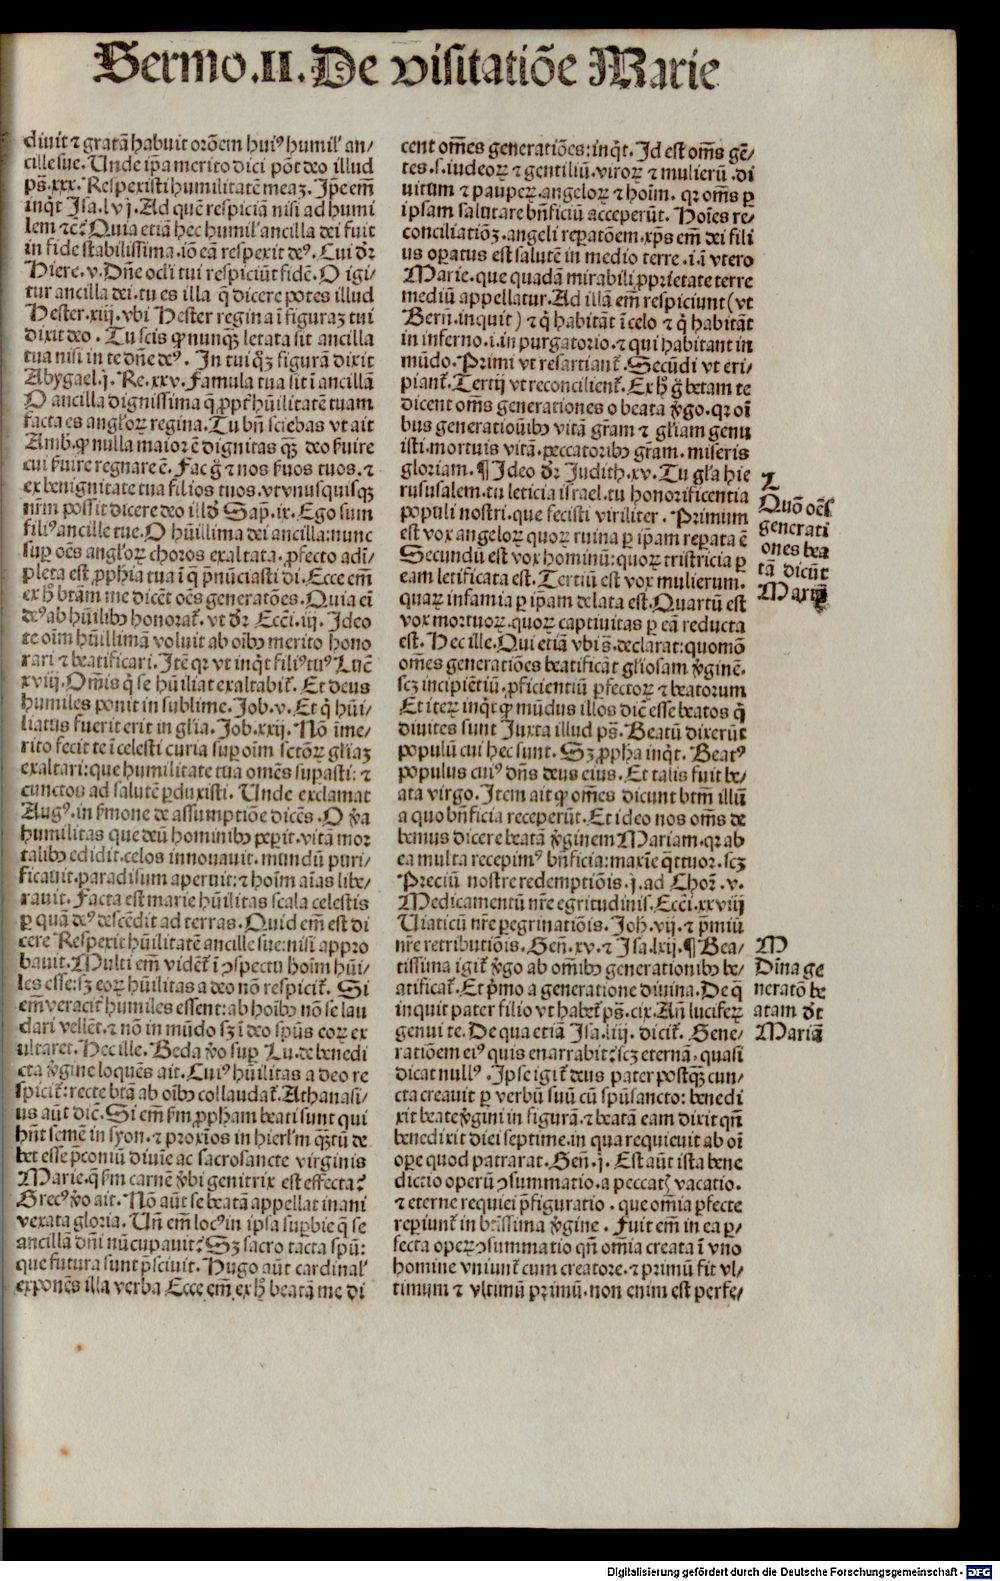 Sermo.II.De visitatiõe Marie
diuit ⁊ gratã habuit orõem huiꝰ humil' an/
cille sue. Unde ip̃a merito dici põt deo illud
ps̃.xxx. Respexisti humilitatẽ meaꝫ. Ip̃e em̃
inq̃t Isa.lvj. Ad quẽ respiciã nisi ad humi
lem ⁊c̃? Quia etiã hec humil' ancilla dei fuit
in fide stabilissima.iõ eã respexit deꝰ. Cui dr̃
Hiere.v. Dñe ocl'i tui respiciũt fidẽ. O igi/
tur ancilla dei.tu es illa q̃ dicere potes illud
Hester.xiij.vbi Hester regina ĩ figuraꝫ tui
dixit deo. Tu scis ꝙ nunqꝫ letata sit ancilla
tua nisi in te dñe deꝰ. In tui q̃ꝫ figurã dixit
Abygael.j. Re.xxv. Famula tua sit ĩ ancillã
O ancilla dignissima q̃ ꝓpt̃ hũilitatẽ tuam
facta es angl'oꝝ regina. Tu bñ sciebas vt ait
Amb.ꝙ nulla maior ẽ dignitas qꝫ̃ deo ẜuire
cui ẜuire regnare ẽ. Fac g̃ ⁊ nos ẜuos tuos.⁊
ex benignitate tua filios tuos.vt vnusquisqꝫ
nr̃m possit dicere deo illđ Sap̃.ix. Ego sum
filiꝰ ancille tue. O hũillima dei ancilla:nunc
suꝑ oẽs angl'oꝝ choros exaltata.ꝓfecto adĩ/
pleta est ꝓph̃ia tua ĩ q̃ p̃nũciasti di. Ecce em̃
ex hꝰ btãm me dicẽt oẽs generatões. Quia eĩ
deꝰ ab hũilibꝫ honorat̃. vt dr̃ Ecc̃i.iij. Ideo
te oim̃ hũillimã voluit ab oĩbꝫ merito hono
rari ⁊ beatificari. Itẽ qꝛ vt inq̃t filiꝰ tuꝰ Luc̃
xviij. Om̃is q̃ se hũiliat exaltabit̃. Et deus
humiles ponit in sublime. Job.v. Et q̃ hũi/
liatus fuerit erit in gl'ia. Job.xxij. Nõ ĩme/
rito fecit te ĩ celesti curia suꝑ oĩm sctõꝝ gl'iaꝫ
exaltari:que humilitate tua omẽs suꝑasti:⁊
cunctos ad salutẽ ꝑduxisti. Unde exclamat
Augꝰ.in ẜmone de assumptiõe dicẽs. O v̾a
humilitas que deũ hominibꝫ peꝑit.vitã mor
talibꝫ edidit.celos innouauit.mundũ puri/
ficauit.paradisum aperuit:⁊ hoĩm aĩas libe/
rauit. Facta est marie hũilitas scala celestis
ꝑ quã deꝰ descẽdit ad terras. Quid em̃ est di
cere Respexit hũilitatẽ ancille sue:nisi appro
bauit. Multi em̃ vidẽt̃ ĩ ↄspectu hoĩm hũi/
les esse:sꝫ eoꝝ hũilitas a deo nõ respicit̃. Si
em̃ veracit̃ humiles essent:ab hoĩbꝫ nõ se lau
dari vellẽt.⁊ nõ in mũdo sꝫ ĩ deo sp̃us eoꝝ ex
ultaret. Hec ille. Beda v̾o suꝑ Lu.de benedi
cta v̾gine loquẽs ait. Cuiꝰ hũilitas a deo re
spicit̃:recte btã ab oĩbꝫ collaudat̃. Athanasi/
us aũt dic̃. Si em̃ ẜm ꝓpham beati sunt qui
hñt semẽ in syon.⁊ proxĩos in hierl'm qꝫ̃tũ de
bet esse p̃coniũ diuĩe ac sacrosancte virginis
Marie.q̃ ẜm carnẽ v̾bi genitrix est effecta?
Grecꝰ v̾o ait. Nõ aũt se beatã appellat inani
vexata gloria. Uñ em̃ locꝰ in ipsa suꝑbie q̃ se
ancillã dñi nũcupauit? Sꝫ sacro tacta spũ:
que futura sunt p̃sciuit. Hugo aũt cardinal'
exponẽs illa verba Ecce em̃ ex hꝰ beatã me di
cent om̃es generatiões:inq̃t. Id est om̃s gẽ/
tes.s.iudeoꝝ ⁊ gentiliũ.viroꝝ ⁊ mulierũ.di
uitum ⁊ pauperꝝ.angeloꝝ ⁊ hoĩm. qꝛ om̃s ꝑ
ipsam salutare bñficiũ acceperũt. Hoĩes re/
conciliatiõꝫ.angeli reꝑatõem.xp̃s em̃ dei fili
us oꝑatus est salutẽ in medio terre.i.ĩ vtero
Marie.que quadã mirabili ꝓprietate terre
mediũ appellatur. Ad illã em̃ respiciunt (vt
Berñ.inquit) ⁊ q̃ habitãt ĩ celo ⁊ q̃ habitãt
in inferno.i.in purgatorio.⁊ qui habitant in
mũdo. Primi vt resartiant̃. Secũdi vt eri/
piant̃. Tertij vt reconcilient̃. Ex hꝰ g̃ beatam te
dicent om̃s generationes o beata v̾go.qꝛ oĩ
bus generatiõĩbꝫ vitã gr̃am ⁊ gl'iam genu
isti.mortuis vitã.peccatoribꝫ gr̃am.miseris
gloriam. ¶ Ideo dr̃ Judith.xv. Tu gl'a hie
rusalem.tu leticia israel.tu honorificentia
populi nostri.que fecisti viriliter. Primum
est vox angeloꝝ quoꝝ ruina ꝑ ip̃am reꝑata ẽ
Secundũ est vox hominũ:quoꝝ tristricia ꝑ
eam letificata est. Tertiũ est vox mulierum.
quaꝝ infamia ꝑ ip̃am delata est. Quartũ est
vox mortuoꝝ.quoꝝ captiuitas ꝑ eã reducta
est. Hec ille. Qui etiã vbi s̃.declarat:quomõ
om̃es generatiões beatificãt gl'iosam v̾ginẽ.
scꝫ incipiẽtiũ.ꝓficientiũ ꝑfectoꝝ ⁊ beatorum
Et iteꝝ inq̃t ꝙ mũdus illos dic̃ esse beatos q̃
diuites sunt Juxta illud ps̃. Beatũ dixerũt
populũ cui hec sunt. Sꝫ ꝓpha inq̃t. Beatꝰ
populus cuiꝰ dñs deus eius. Et talis fuit be/
ata virgo. Item ait ꝙ om̃es dicunt btm̃ illũ
a quo bñficia receperũt. Et ideo nos om̃s de
bemus dicere beatã v̾ginem Mariam.qꝛ ab
ea multa recepimꝰ bñficia:maxĩe q̃ttuor.scꝫ
Preciũ nostre redemptiõis.j.ad Choꝝ.v.
Medicamentũ nr̃e egritudinis. Ecc̃i.xxviij
Uiaticũ nr̃e peregrinatiõis. Joh̃.vij.⁊ p̃miũ
nr̃e retributiõis. Geñ.xv.⁊ Isa.lxij. ¶ Bea/
tissima igit̃ v̾go ab om̃ibꝫ generationibꝫ be/
atificat̃. Et p̾mo a generatione diuina. De q̃
inquit pater filio vt habet̃ ps̃.cix. Añ luciferꝝ
genui te. De qua etiã Isa.liij.dicit̃. Gene/
ratiõem eiꝰ quis enarrabit?scꝫ eternã.quasi
dicat nullꝰ. Ipse igit̃ deus pater postqꝫ cun/
cta creauit ꝑ verbũ suũ cũ sp̃usancto:benedi
xit beate v̾gini in figurã.⁊ beatã eam dixit qñ
benedixit diei septime.in qua requieuit ab oĩ
oꝑe quod patrarat. Geñ.j. Est aũt ista bene
dictio operũ ↄsummatio.a peccatꝭ vacatio.
⁊ eterne requiei p̃figuratio.que om̃ia ꝑfecte
reꝑiunt̃ in bt̃issima v̾gine. Fuit em̃ in ea ꝑ/
fecta oꝑeꝝ ↄsummatio qñ om̃ia creata ĩ vno
homine vniunt̃ cum creatore.⁊ primũ fit vl/
timum ⁊ vltimũ primũ.non enim est perfe/
L
Quõ oẽs
generati
ones bea
tã dicũt
Mariã
M
Diña ge
neratõ be
atam dr̃
Mariã
Digitalisierung gefördert durch die Deutsche Forschungsgemeinschaft - DFG